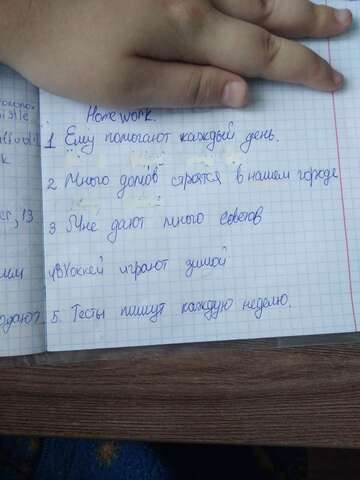 Homework.
1 Ему помогают каждый день.
2 Много домов строятся в нашем городе
3 Мне дают много советов
4 В Хоккей играют зимой
5. Тесты пишут каждую неделю.